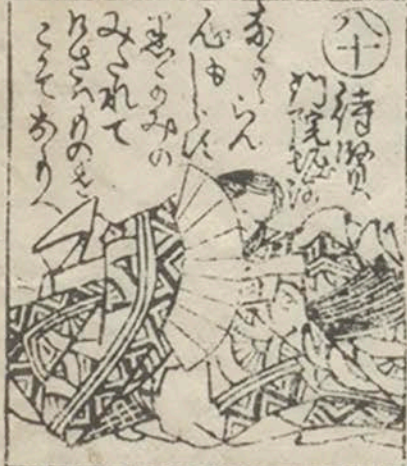 八十
待賢
門院堀河
なかゝらん
心もしらす
黒かみの
みたれて
けさはものを
こそおもへ